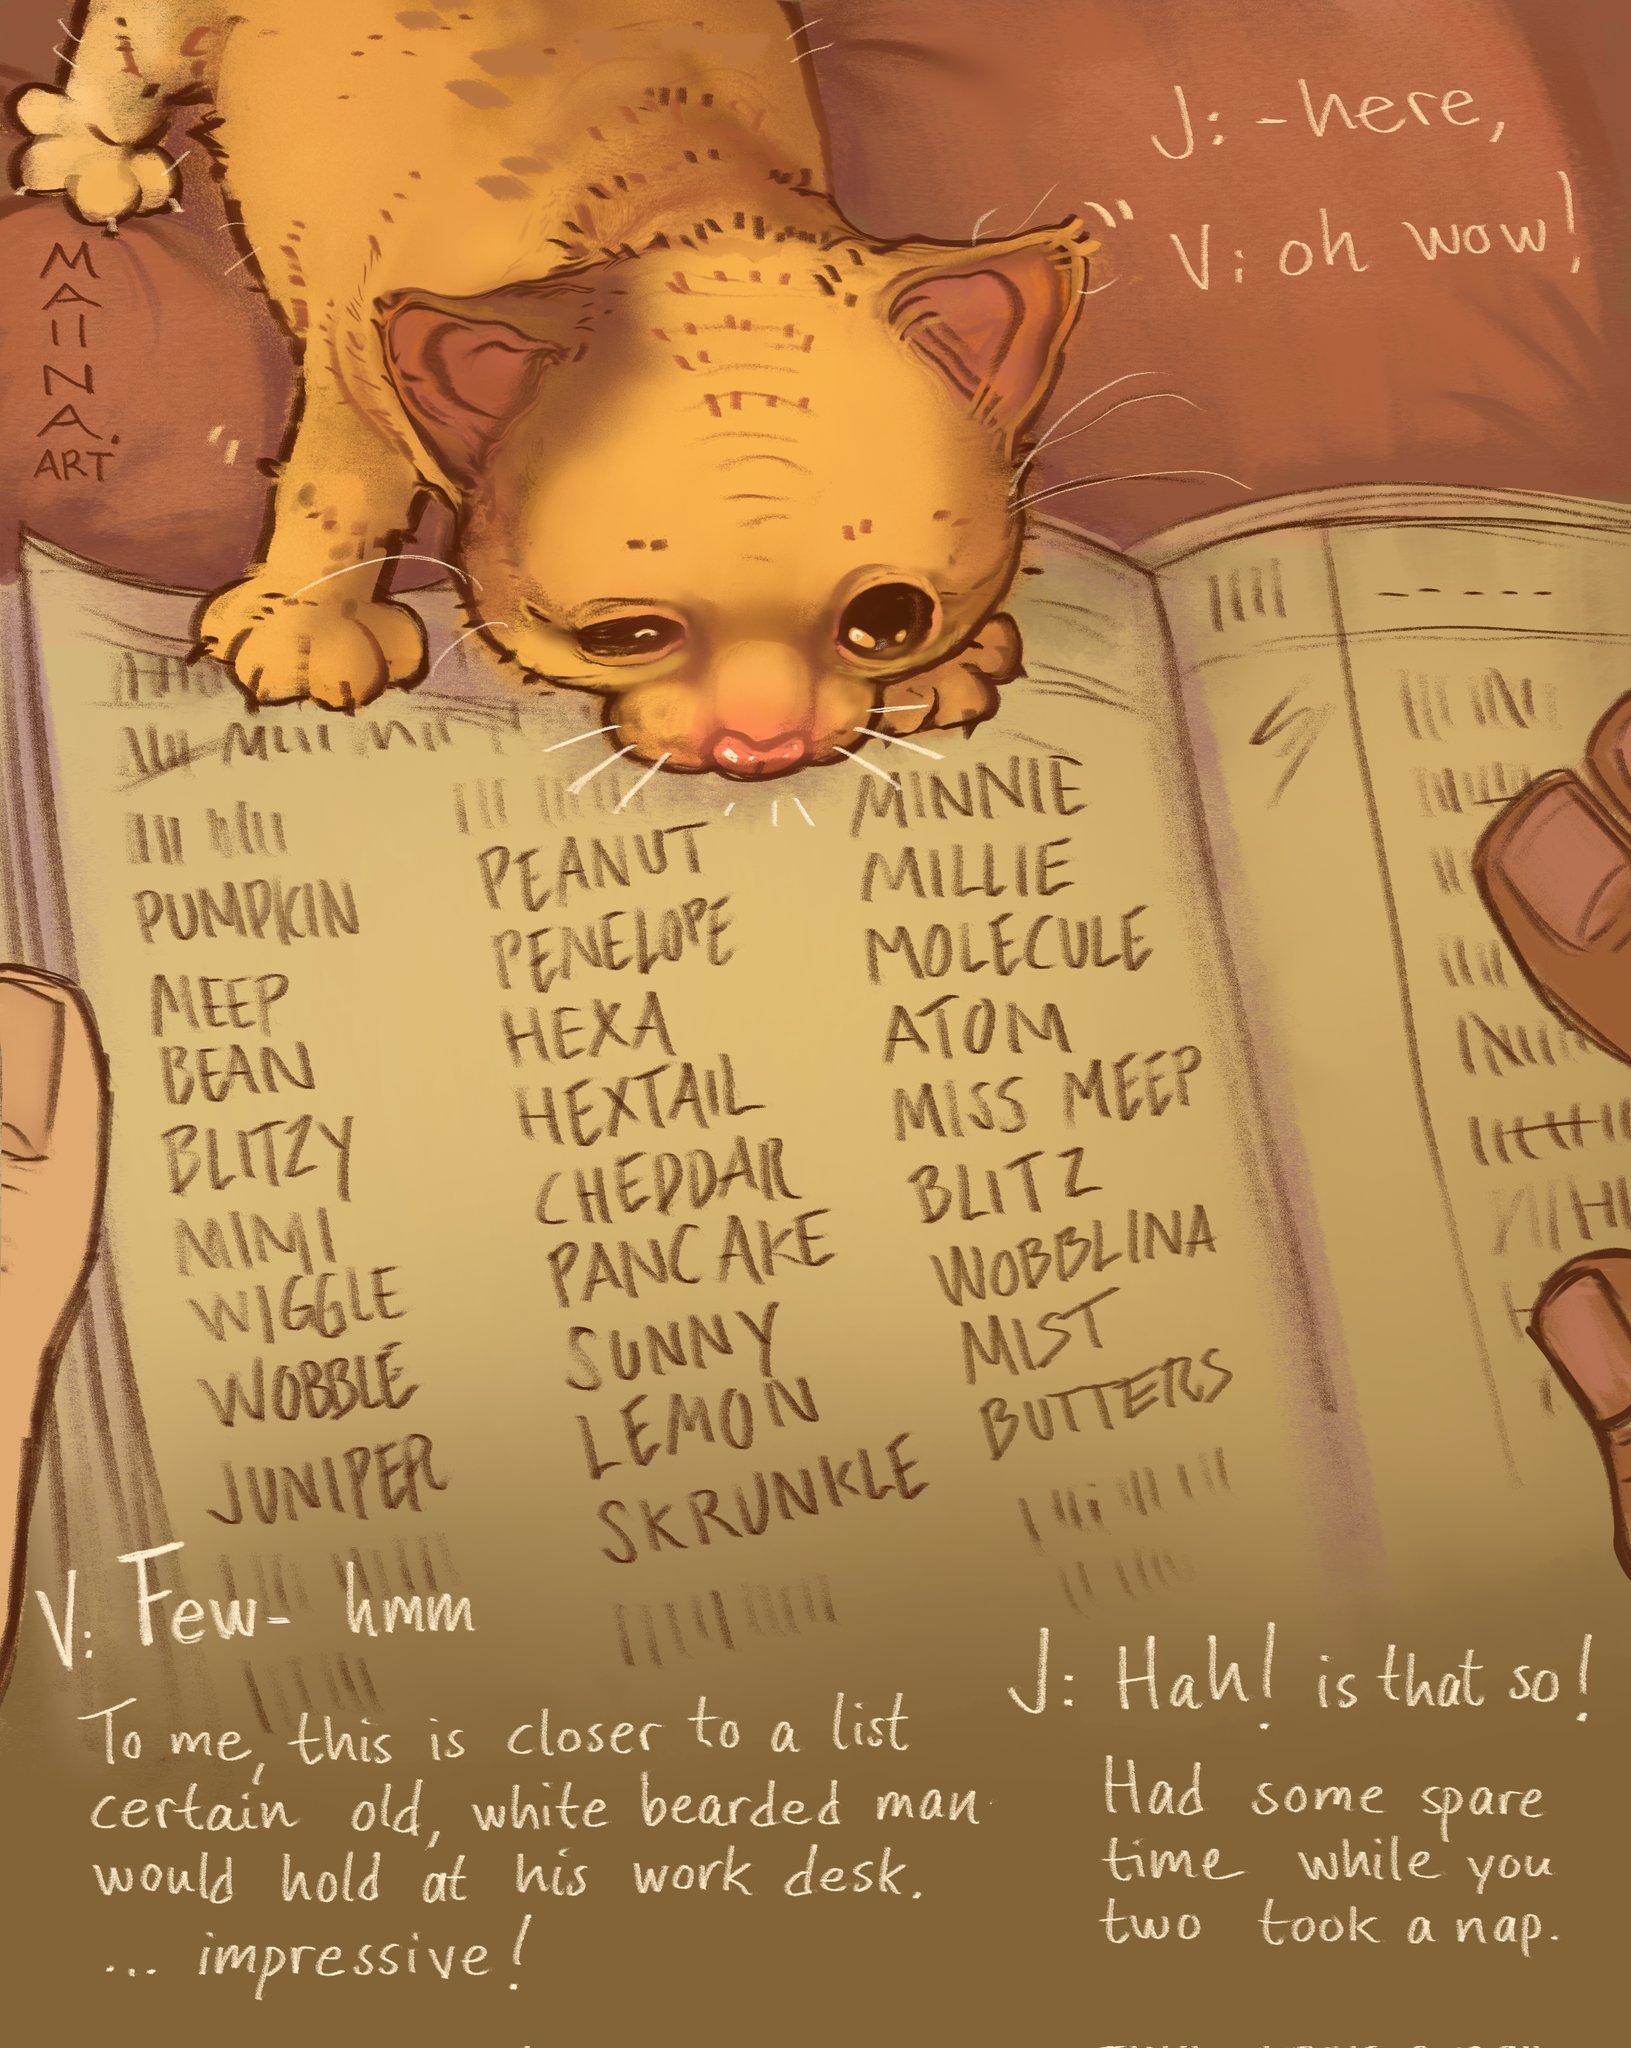 J: -here,
V: oh wow!
MAIINA.
ART
PUMPKIN
MEEP
BEAN
BLITZY
MIMI
WIGGLE
WOBBLE
JUNIPER
PEANUT
PENELOPE
HEXA
HEXTAIL
CHEDDAR
PANCAKE
SUNNY
LEMON
SKRUNKLE
MINNIE
MILLIE
MOLECULE
ATOM
MISS MEEP
BLITZ
WOBBLINA
MIST
BUTTERS
V: Few- hmm
To me, this is closer to a list
certain old, white bearded man
would hold at his work desk.
... impressive!
J: Hah! is that so!
Had some spare
time while you
two took a nap.